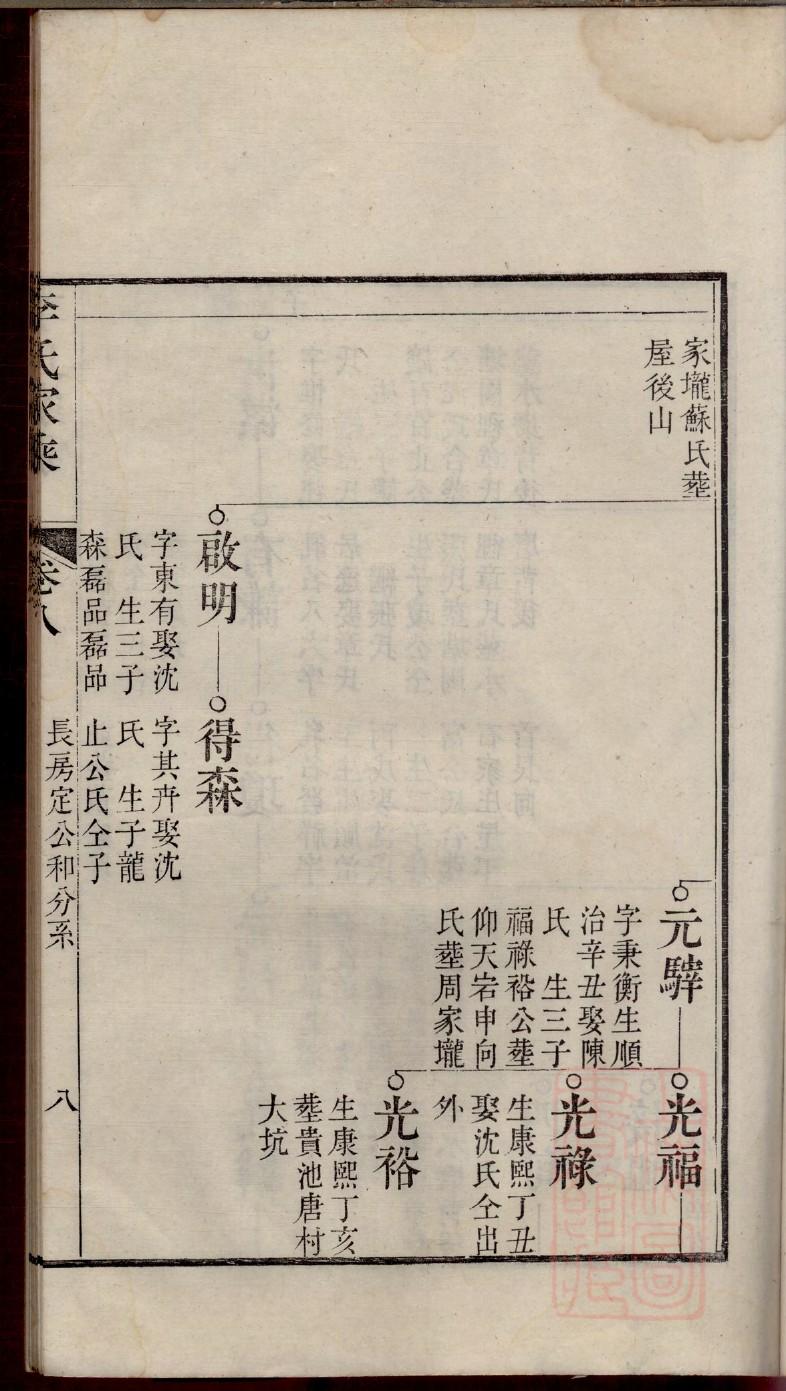 家壠蘇氏塟
屋後山
元驊
字秉衡生順
治辛丑娶陳
氏　生三子
福祿裕公塟
仰天岩申向
氏塟周家壠
光福
光祿
生康熙丁丑
娶沈氏仝出
外
光裕
生康熙丁亥
塟貴池唐村
大坑
啟明
字東有娶沈
氏　生三子
森磊品磊品
得森
字其卉娶沈
氏　生子龍
止公氏仝子
長房定公和分系
李氏家乘
卷八
八